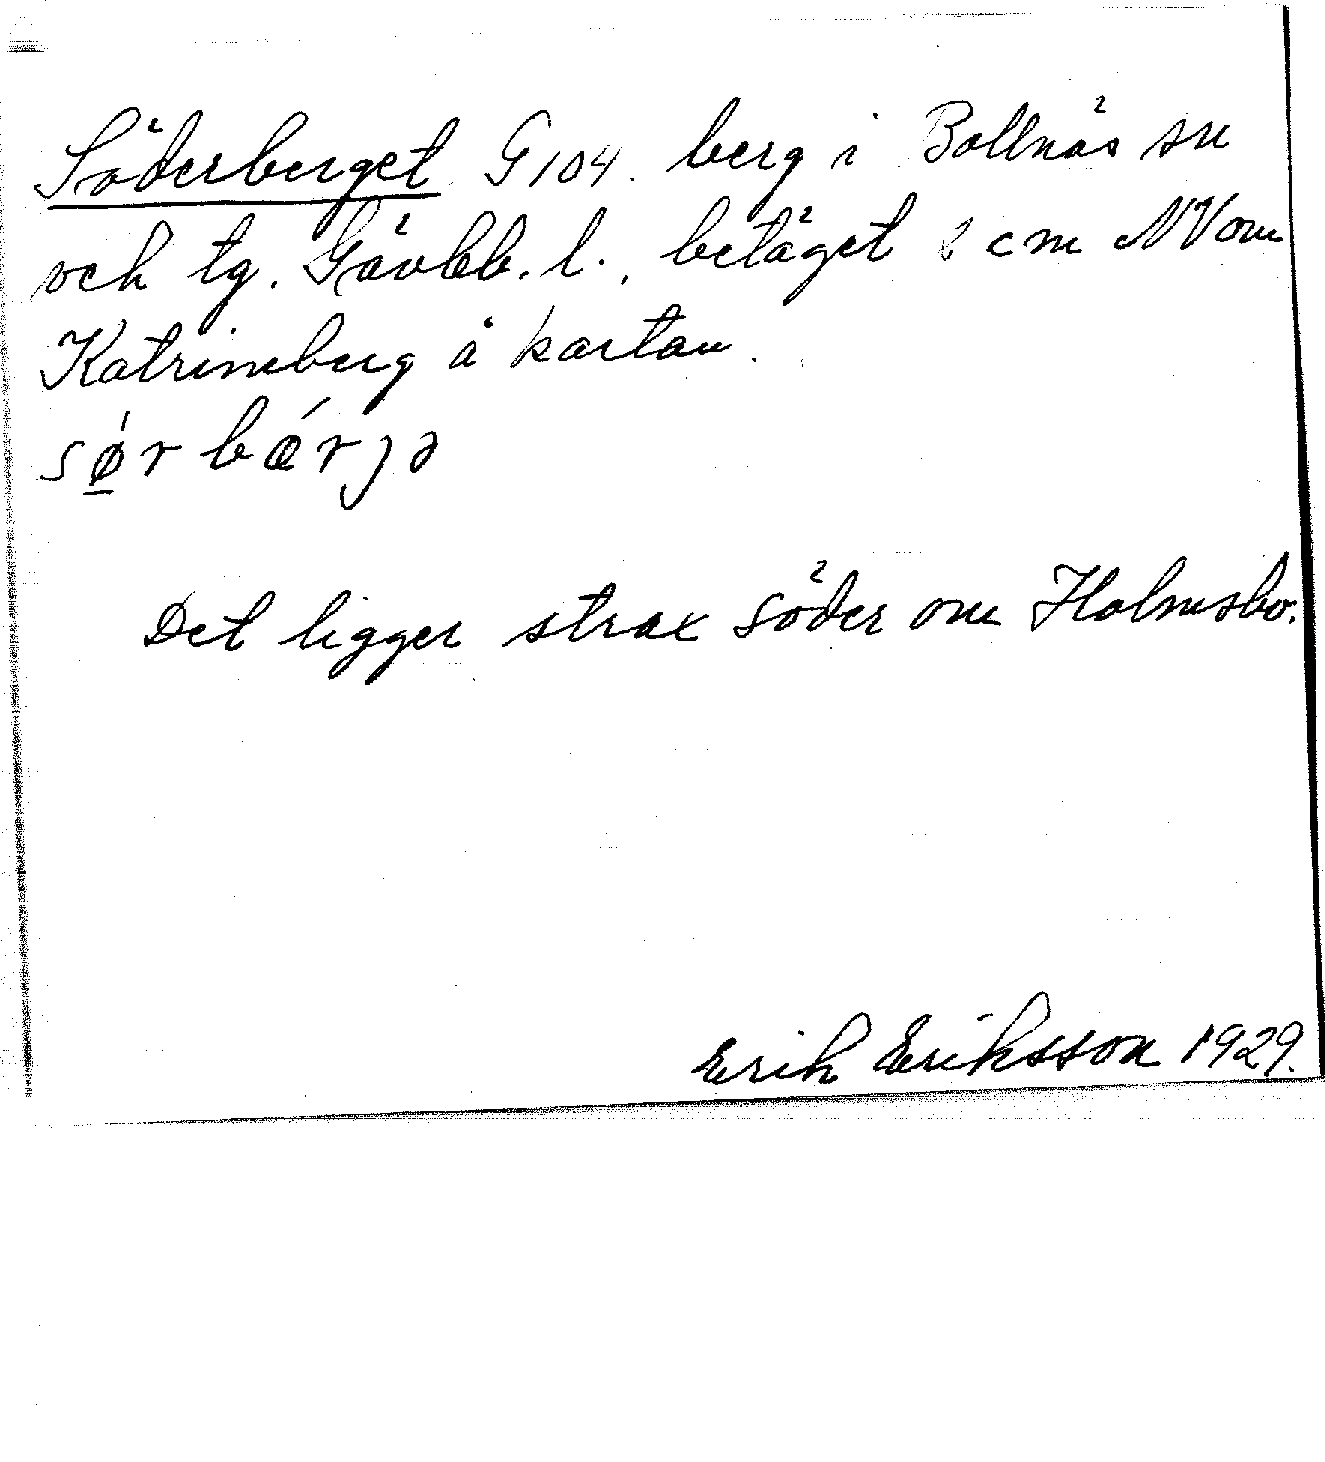 Söderberget G 104. berg i Bollnäs sn
och tg. Gävleb. l., beläget cm NV om
Katrineberg å kartan.
sǿ̱r bǽrjə
Det ligger strax söder om Holmsbo.
Erik Eriksson 1929.